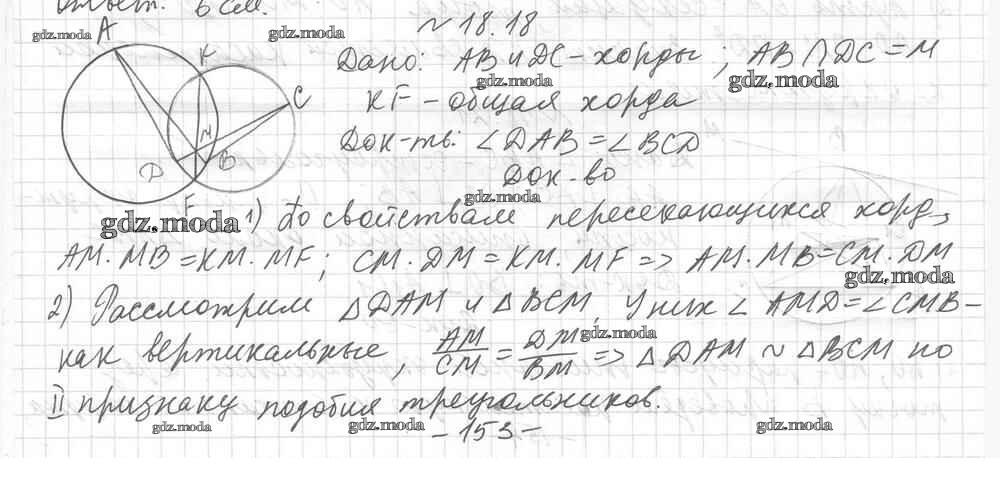 Ответ. 6 см.
№ 18.18
gdz.moda
gdz.moda
A
K
C
N
D
B
F
Дано: AB и DC – хорды; AB ∩ DC = M
gdz.moda
gdz.moda
KF – общая хорда
Док-ть: ∠DAB = ∠BCD
Док-во
gdz.moda
gdz.moda
1) По свойствам пересекающихся хорд,
AM · MB = KM · MF; CM · DM = KM · MF => AM · MB = CM · DM
gdz.moda
2) Рассмотрим △DAM и △BCM, У них ∠AMD = ∠CMB –
gdz.moda
как вертикальные, AM/CM = DM/BM => △DAM ~ △BCM по
II признаку подобия треугольников.
gdz.moda
gdz.moda
gdz.moda
– 153 –